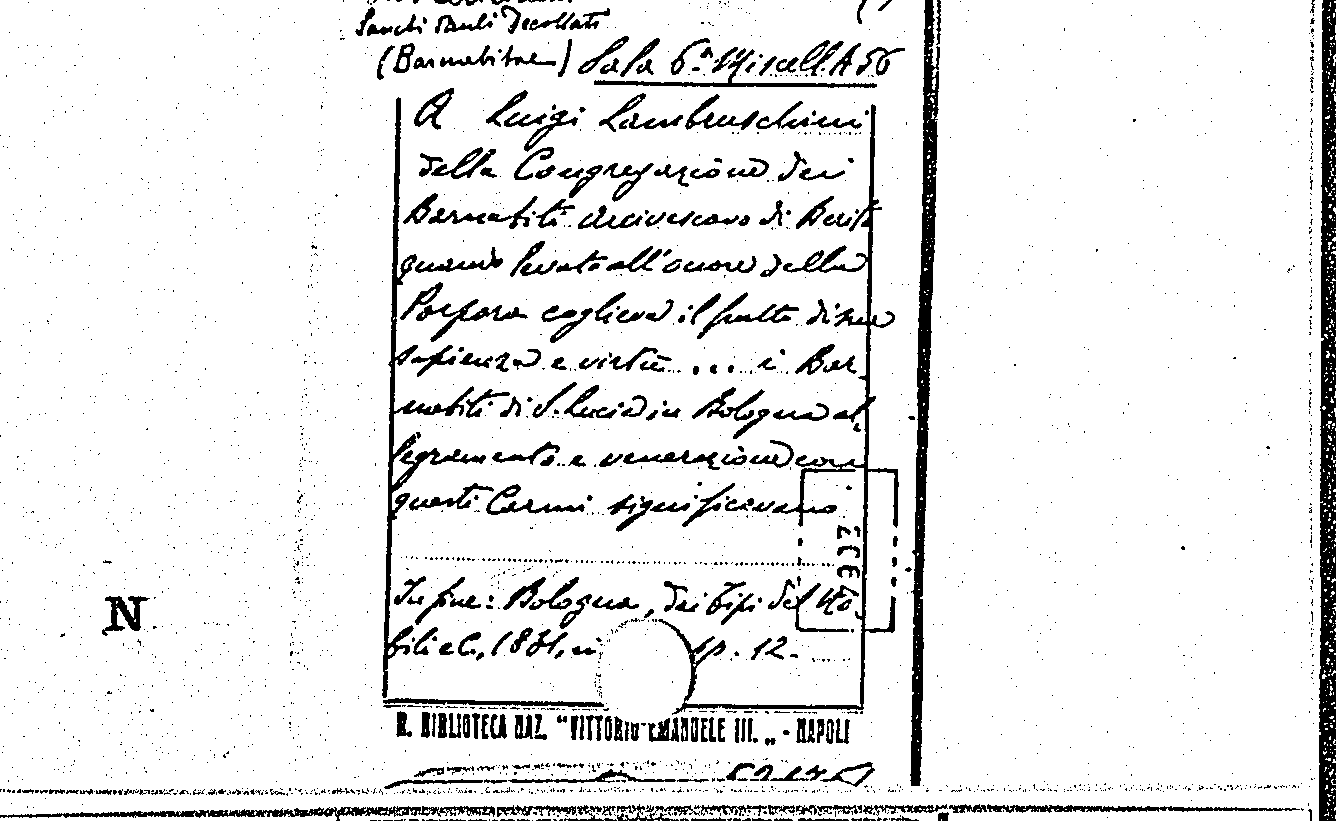 Sancti Pauli Decollati
(Barnabitae) Sala 6.a Miscell. A 56
A Luigi Lambruschini
della Congregazione dei
Barnabiti arcivescovo di Berito
quando levato all'onore della
Porpora coglieva il frutto di sua
sapienza e virtù ... i Bar-
nabiti di S. Lucia in Bologna al-
legramento e venerazione con
questi Carmi significavano
In fine: Bologna, dai tipi del No-
bili e C., 1831, in p. 12.
N
R. BIBLIOTECA NAZ. "VITTORIO EMANUELE III. „ - NAPOLI